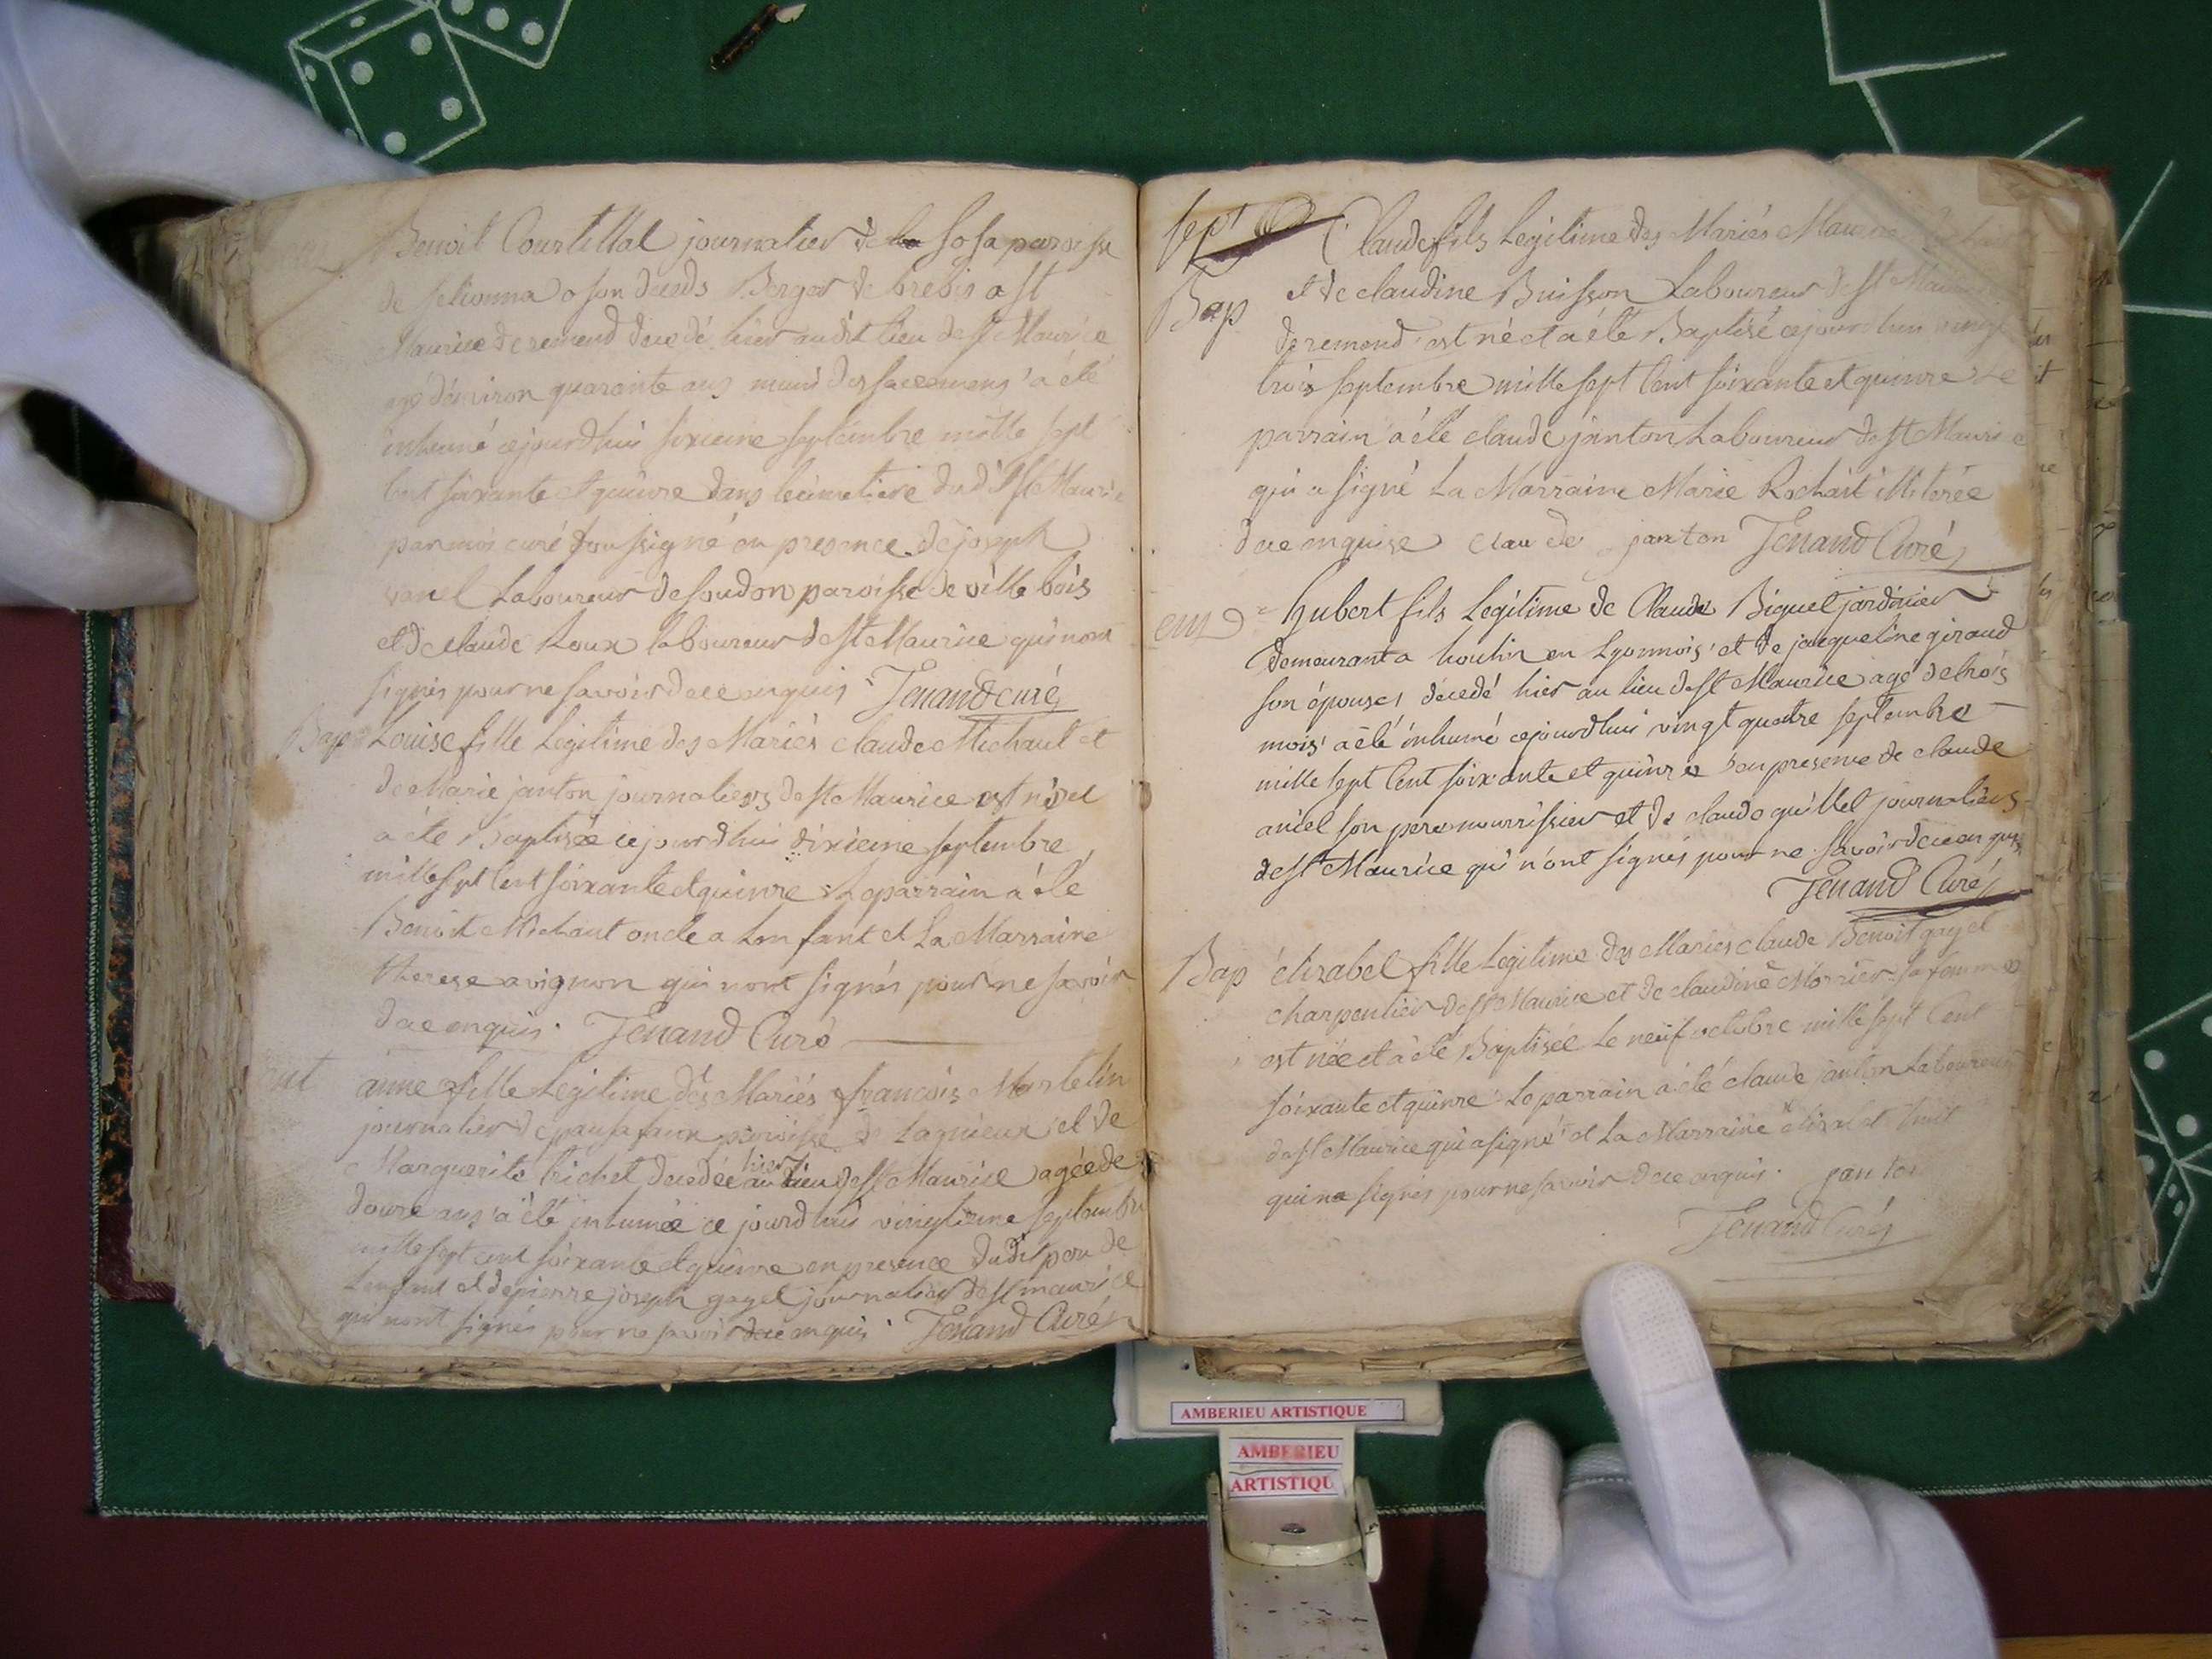 Benoit Courtillat journalier de la sosa paroisse
de a son deceds Berger de brebis a st
Maurice de remend decedé hier audit lieu de st Maurice
agé d'environ quarante ans muni des sacremens a été
inhumé cejourdhui sixieme septembre mille sept
cent soixante et quinze dans le cimetiere dudit st Maurice
par moi curé soussigné en presence de joseph
vanel Laboureur de soudon paroisse de ville bois
et de claude Roux laboureur de st Maurice qui nont
signés pour ne savoir de ce enquis Tenand curé
Bap Louise fille Legitime des Mariés claude Michaut et
de Marie janton journaliers de st Maurice est née et
a été Baptisée cejourdhui dixieme septembre
mille sept cent soixante et quinze Le parrain a été
Benoit Michaut oncle a Lenfant et La Marraine
therese avignon qui nont signés pour ne savoir
de ce enquis. Tenand Curé
ent anne fille Legitime des Mariés françois Martelin
journalier de paroisse de Lagnieux et de
Marguerite trichet decedée hier au lieu de st Maurice agée de
douze ans a été inhumée ce jourdhui vingtieme septembre
mille sept cent soixante et quinze en presence dudit pere de
Lenfant et de pierre joseph gayet journalier de st maurice
qui nont signés pour ne savoir de ce enquis. Tenand Curé
sept
Claude fils Legitime des Mariés
Bap et de claudine Buisson Laboureur de st Maurice
de remend est né et a été Baptisé cejourdhui vingt
trois septembre mille sept Cent soixante et quinze Le
parrain a été claude janton Laboureur de st Maurice
qui a signé La Marraine Marie Rochait illiterée
de ce enquise claude janton Tenand Curé
ent Hubert fils Legitime de Claude Biguet jardinier
demeurant a houlin en Lyonnois et de jacqueline giraud
son épouse decedé hier au lieu de st Maurice agé de trois
mois a été inhumé cejourdhui vingt quatre septembre
mille sept Cent soixante et quinze en presence de claude
aniel son pere nourrissier et de claude quillet journaliers
de st Maurice qui n'ont signés pour ne savoir de ce enquis
Tenand Curé
Bap élizabet fille Legitime des Mariés claude Benoit gayet
charpentier de st Maurice et de claudine Morrier sa femme
est née et a été Baptisée Le neuf octobre mille sept Cent
soixante et quinze Le parrain a été claude janton Laboureur
de st Maurice qui a signé et La Marraine elizabet
qui na signés pour ne savoir de ce enquis. janton
Tenand Curé
AMBERIEU ARTISTIQUE
AMBERIEU
ARTISTIQU